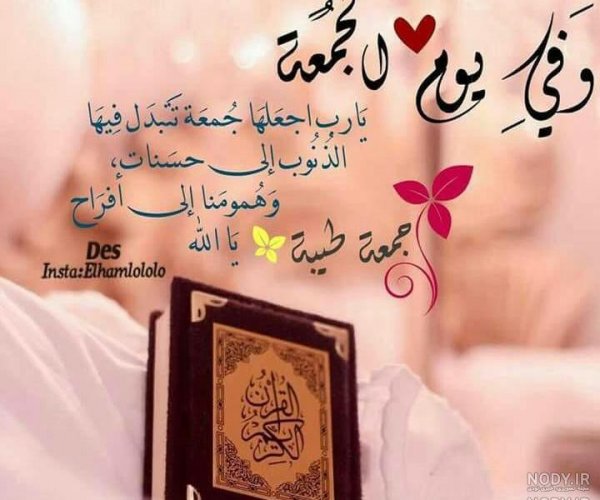 وَفِي يوم الجُمعَة
يَارب اجعَلهَا جُمعَة تَتَبدَل فِيهَا
الذُنُوب إلى حسَنات،
وَهُمومَنا إلى أفرَاح
يَا الله
جمعة طيبة
Des
Insta:Elhamlololo
القرآن
الكريم
NODY.IR